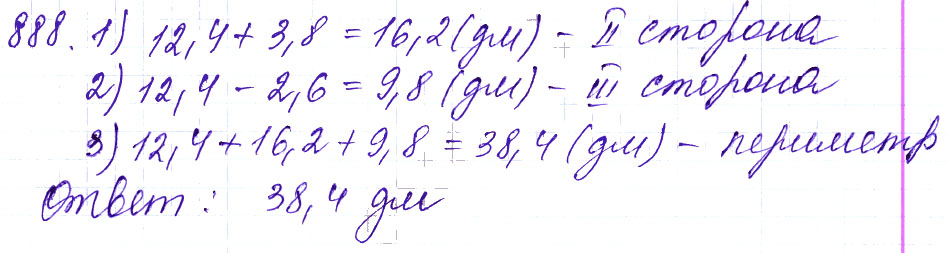 888. 1) 12,4 + 3,8 = 16,2 (дм) – II сторона
2) 12,4 – 2,6 = 9,8 (дм) – III сторона
3) 12,4 + 16,2 + 9,8 = 38,4 (дм) – периметр
Ответ: 38,4 дм